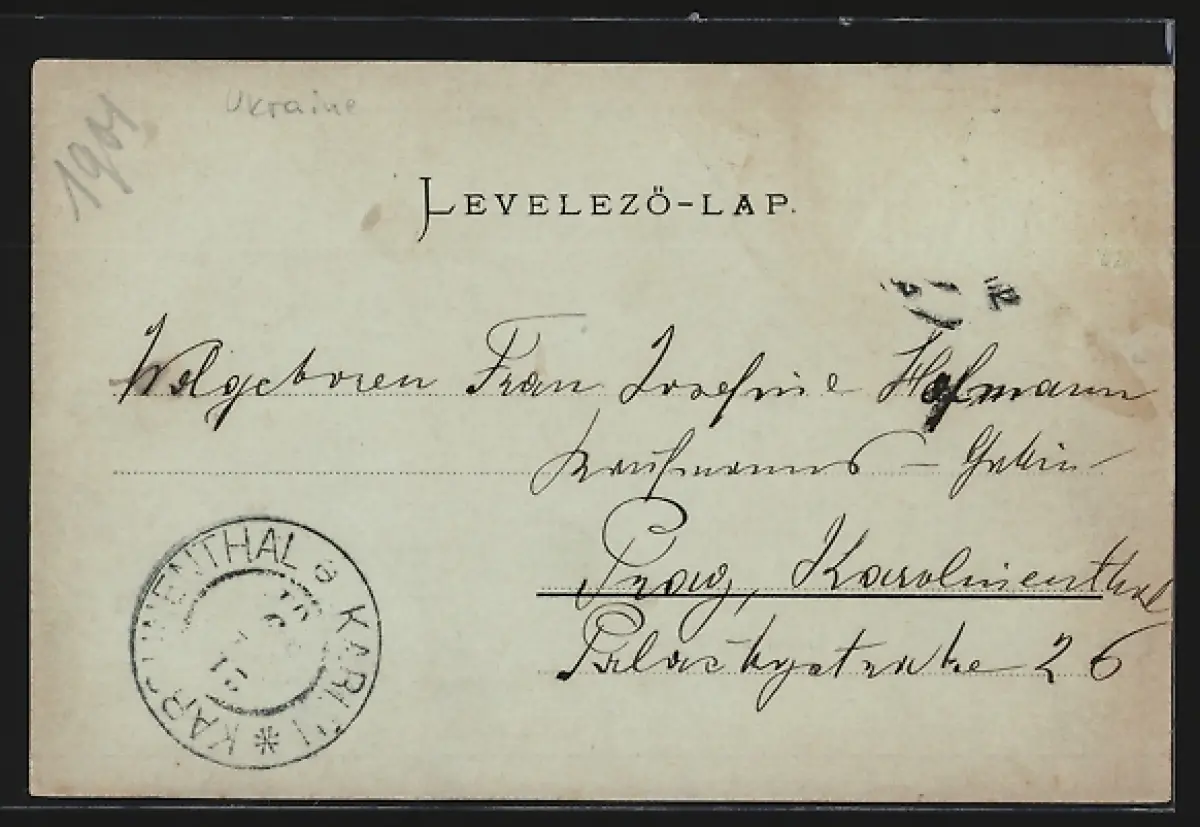 1901
Ukraine
LEVELEZŐ-LAP.
Wolgeboren Frau Josefine Hofmann
Kaufmanns - Gattin
Prag, Karolinenthal
Palackystrake 26
KAROLINENTHAL a KARLIN